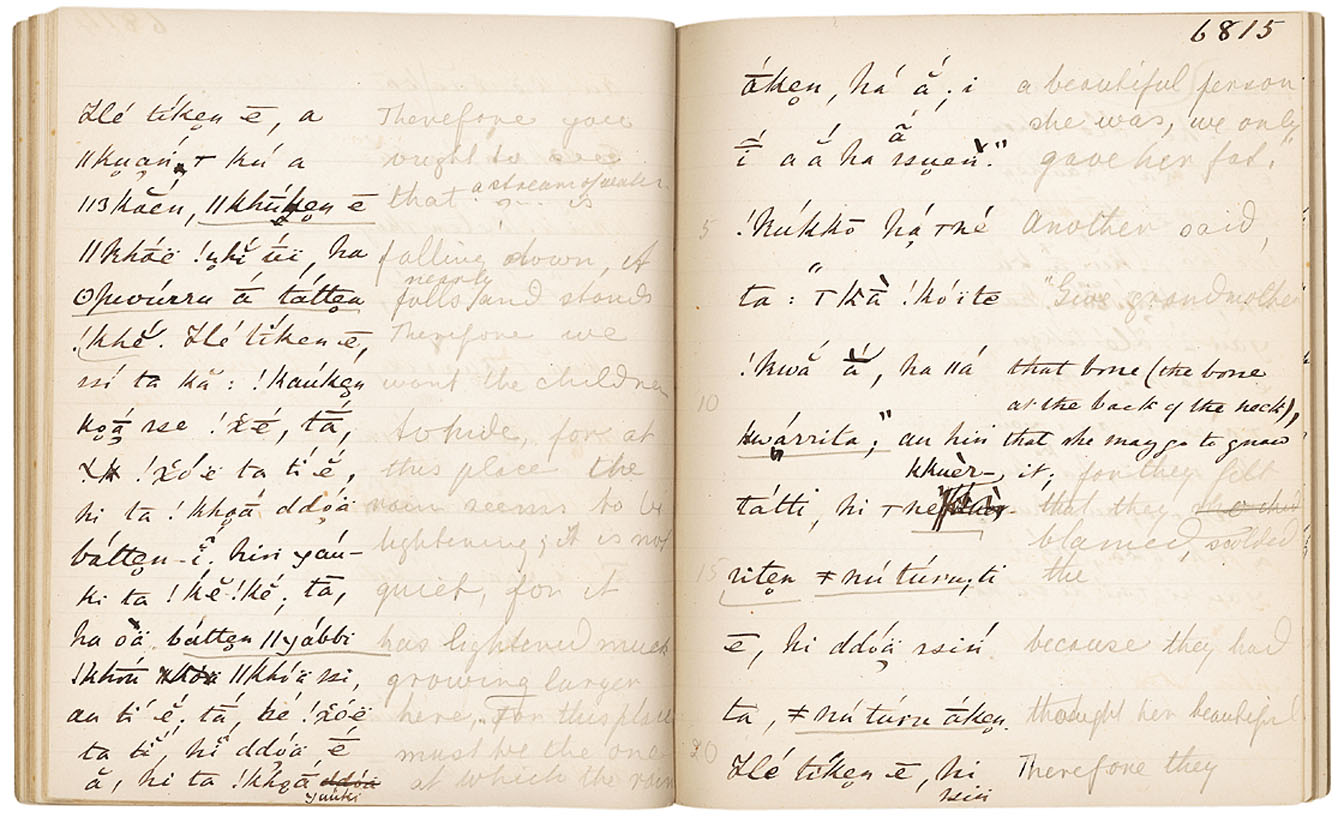 Ꞁlé tíken̥ ē, a
ǁku̥an̥ń ⊤ kú a
ǁ3kǒén, ǁkhú̄ken̥ ē
ǁkhóë !u̥hí úï, ha
ʘpwúrru á tátten̥
!khĕ́. Hé tíken ē,
ssí ta kă : !kaúken̥
ko̥á̄ sse !x̌é, tā́,
!x̌óë ta tí é,
hi ta !kho̥ā́ ddóä
bátten̥-ĩ, hin yáu-
ki ta !kĕ́!kĕ́; tā́,
ha óä bátten̥ ǁyábbi
!khóń ǁkhóä ssi,
au tí é, tā́, hé !x̌óë
ta tí, hĭ ddóä é
ă, hi ta !kho̥á
yaúki
Therefore you
ought to see
that a stream of water is
falling down, it
nearly
falls, and stands
Therefore we
want the children
to hide, for at
this place the
rain seems to be
lightening; it is not
quiet, for it
has lightened much
growing larger
here. For this place
must be the one
at which the rain
6815
áken̥, há ắ; i
í̄ a ă ha ã ssu̥eń."
5 !kúkkō há̤ ⊤né
ta : "⊤kā̀ !kóïte
!kwă á̄, ha ǁá
10
kwárrita;" au hin
kkuèr-
tátti, hi ⊤ne
15 riten̥ ǂnú túru̥, ti
ē, hi ddóä ssiń
ta, ǂnú túru áken̥.
20 Hé tíken̥ ē, hi
ssiń
a beautiful person
she was, we only
gave her fat."
Another said,
"Give grandmother
that bone (the bone
at the back of the neck),
that she may go to gnaw
it; for they felt
that they
blamed, scolded
the
because they had
thought her beautiful
Therefore they